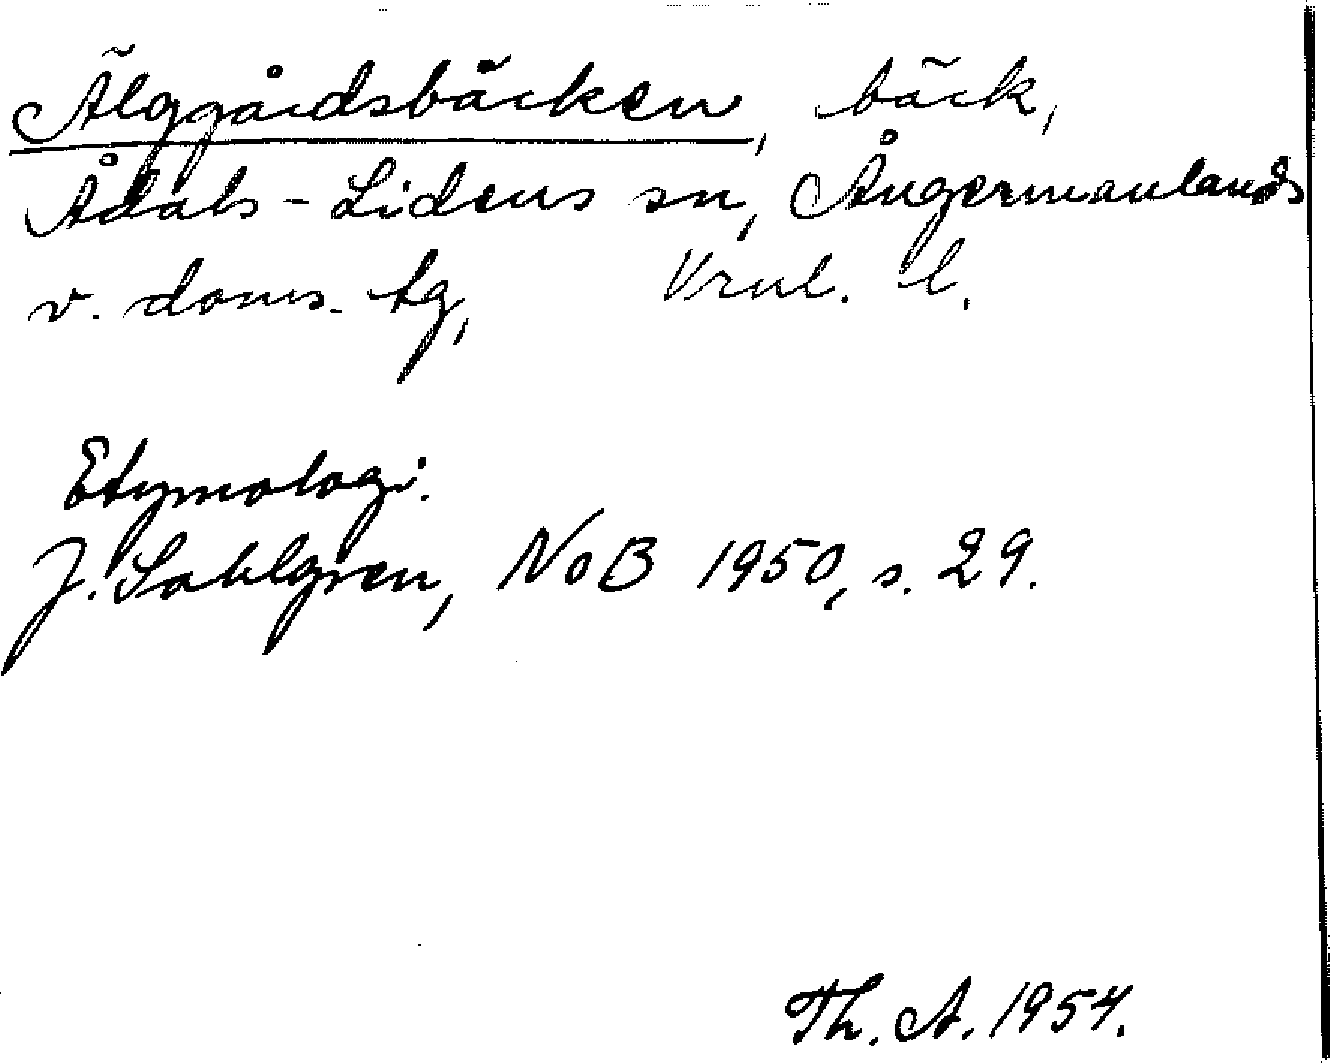 Älggårdsbäcken, bäck,
Ådals-Lidens sn, Ångermanlands
v. doms. tg, Vrnl. l.
Etymologi.
J. Sahlgren, NoB 1950, s. 29.
Th. A. 1954.